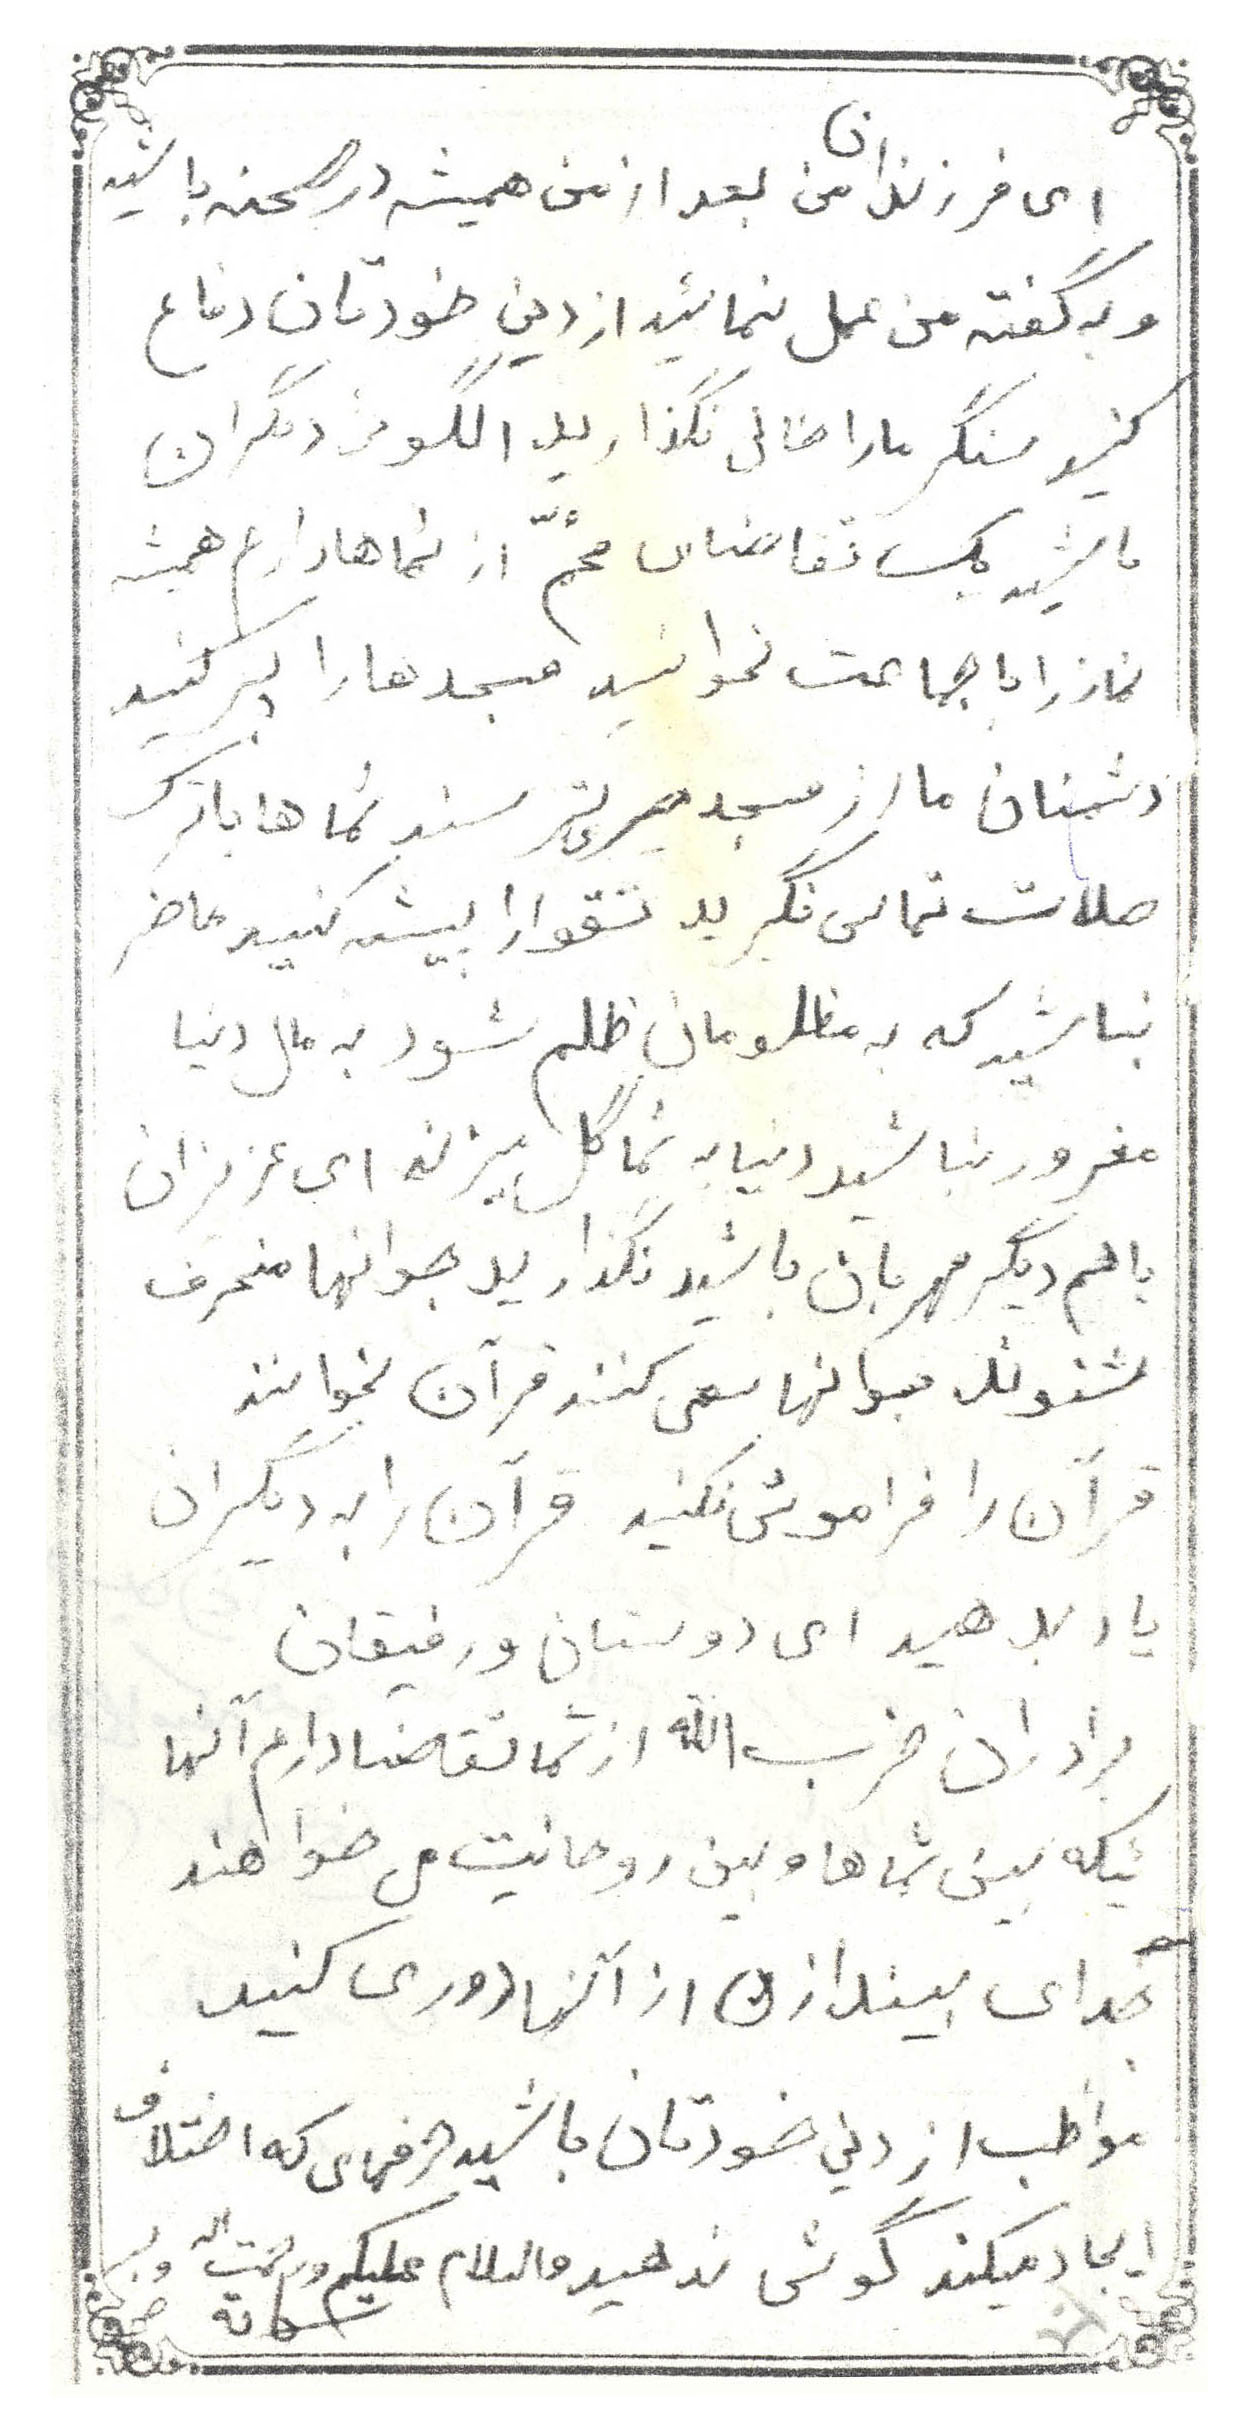 ای فرزندان من بعد از من همیشه در صحنه باشید
و به گفته من عمل نمائید از دین خودتان دفاع
کنید سنگر ما را خالی نگذارید الگوی دیگران
باشید یک تقاضای محمّ از شماها دارم همیشه
نماز را با جماعت بخوانید مسجدها را پر کنید
دشمنان ما از مسجد می ترسند شماها با ترک
صلات تماس نگیرید تقوا را پیشه کنید حاضر
نباشید که به مظلومان ظلم شود به مال دنیا
مغرور نباشید دنیا به شما گل میزند ای عزیزان
با هم دیگر مهربان باشید نگذارید جوانها منحرف
نشوند جوانها سعی کنند قرآن بخوانند
قرآن را فراموش نکنید قرآن را به دیگران
یاد بدهید ای دوستان و رفیقان
برادران حزب الله از شما تقاضا دارم آنها
ئیکه بین شماها و بین روحانیت می خواهند
جدای بیندازن از آنها دوری کنید
مواظب از دین خودتان باشید حرفهای که اختلاف
ایجاد میکند گوش ندهید والسلام علیکم و رحمت اله و بر
کاته